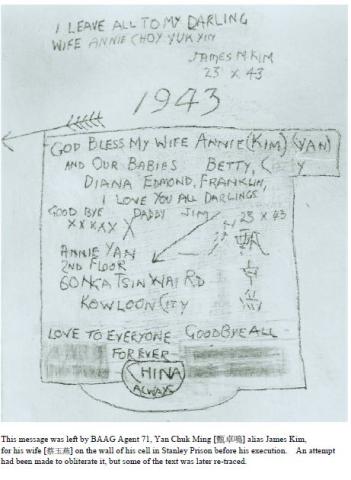 I LEAVE ALL TO MY DARLING
WIFE ANNIE CHOY YUK YIN
JAMES M KIM
23 X 43
1943
GOD BLESS MY WIFE ANNIE (KIM) (YAN)
AND OUR BABIES BETTY, C Y
DIANA EDMOND, FRANKLIN,
I LOVE YOU ALL DARLINGS
GOOD BYE DADDY JIM 23 X 43
XXXXX X
ANNIE YAN
2ND FLOOR
60 NGA TSIN WAI RD
KOWLOON CITY
LOVE TO EVERYONE GOODBYE ALL
FOR EVER
CHINA
ALWAYS
This message was left by BAAG Agent 71, Yan Chuk Ming [甄卓鳴] alias James Kim,
for his wife [蔡玉燕] on the wall of his cell in Stanley Prison before his execution. An attempt
had been made to obliterate it, but some of the text was later re-traced.